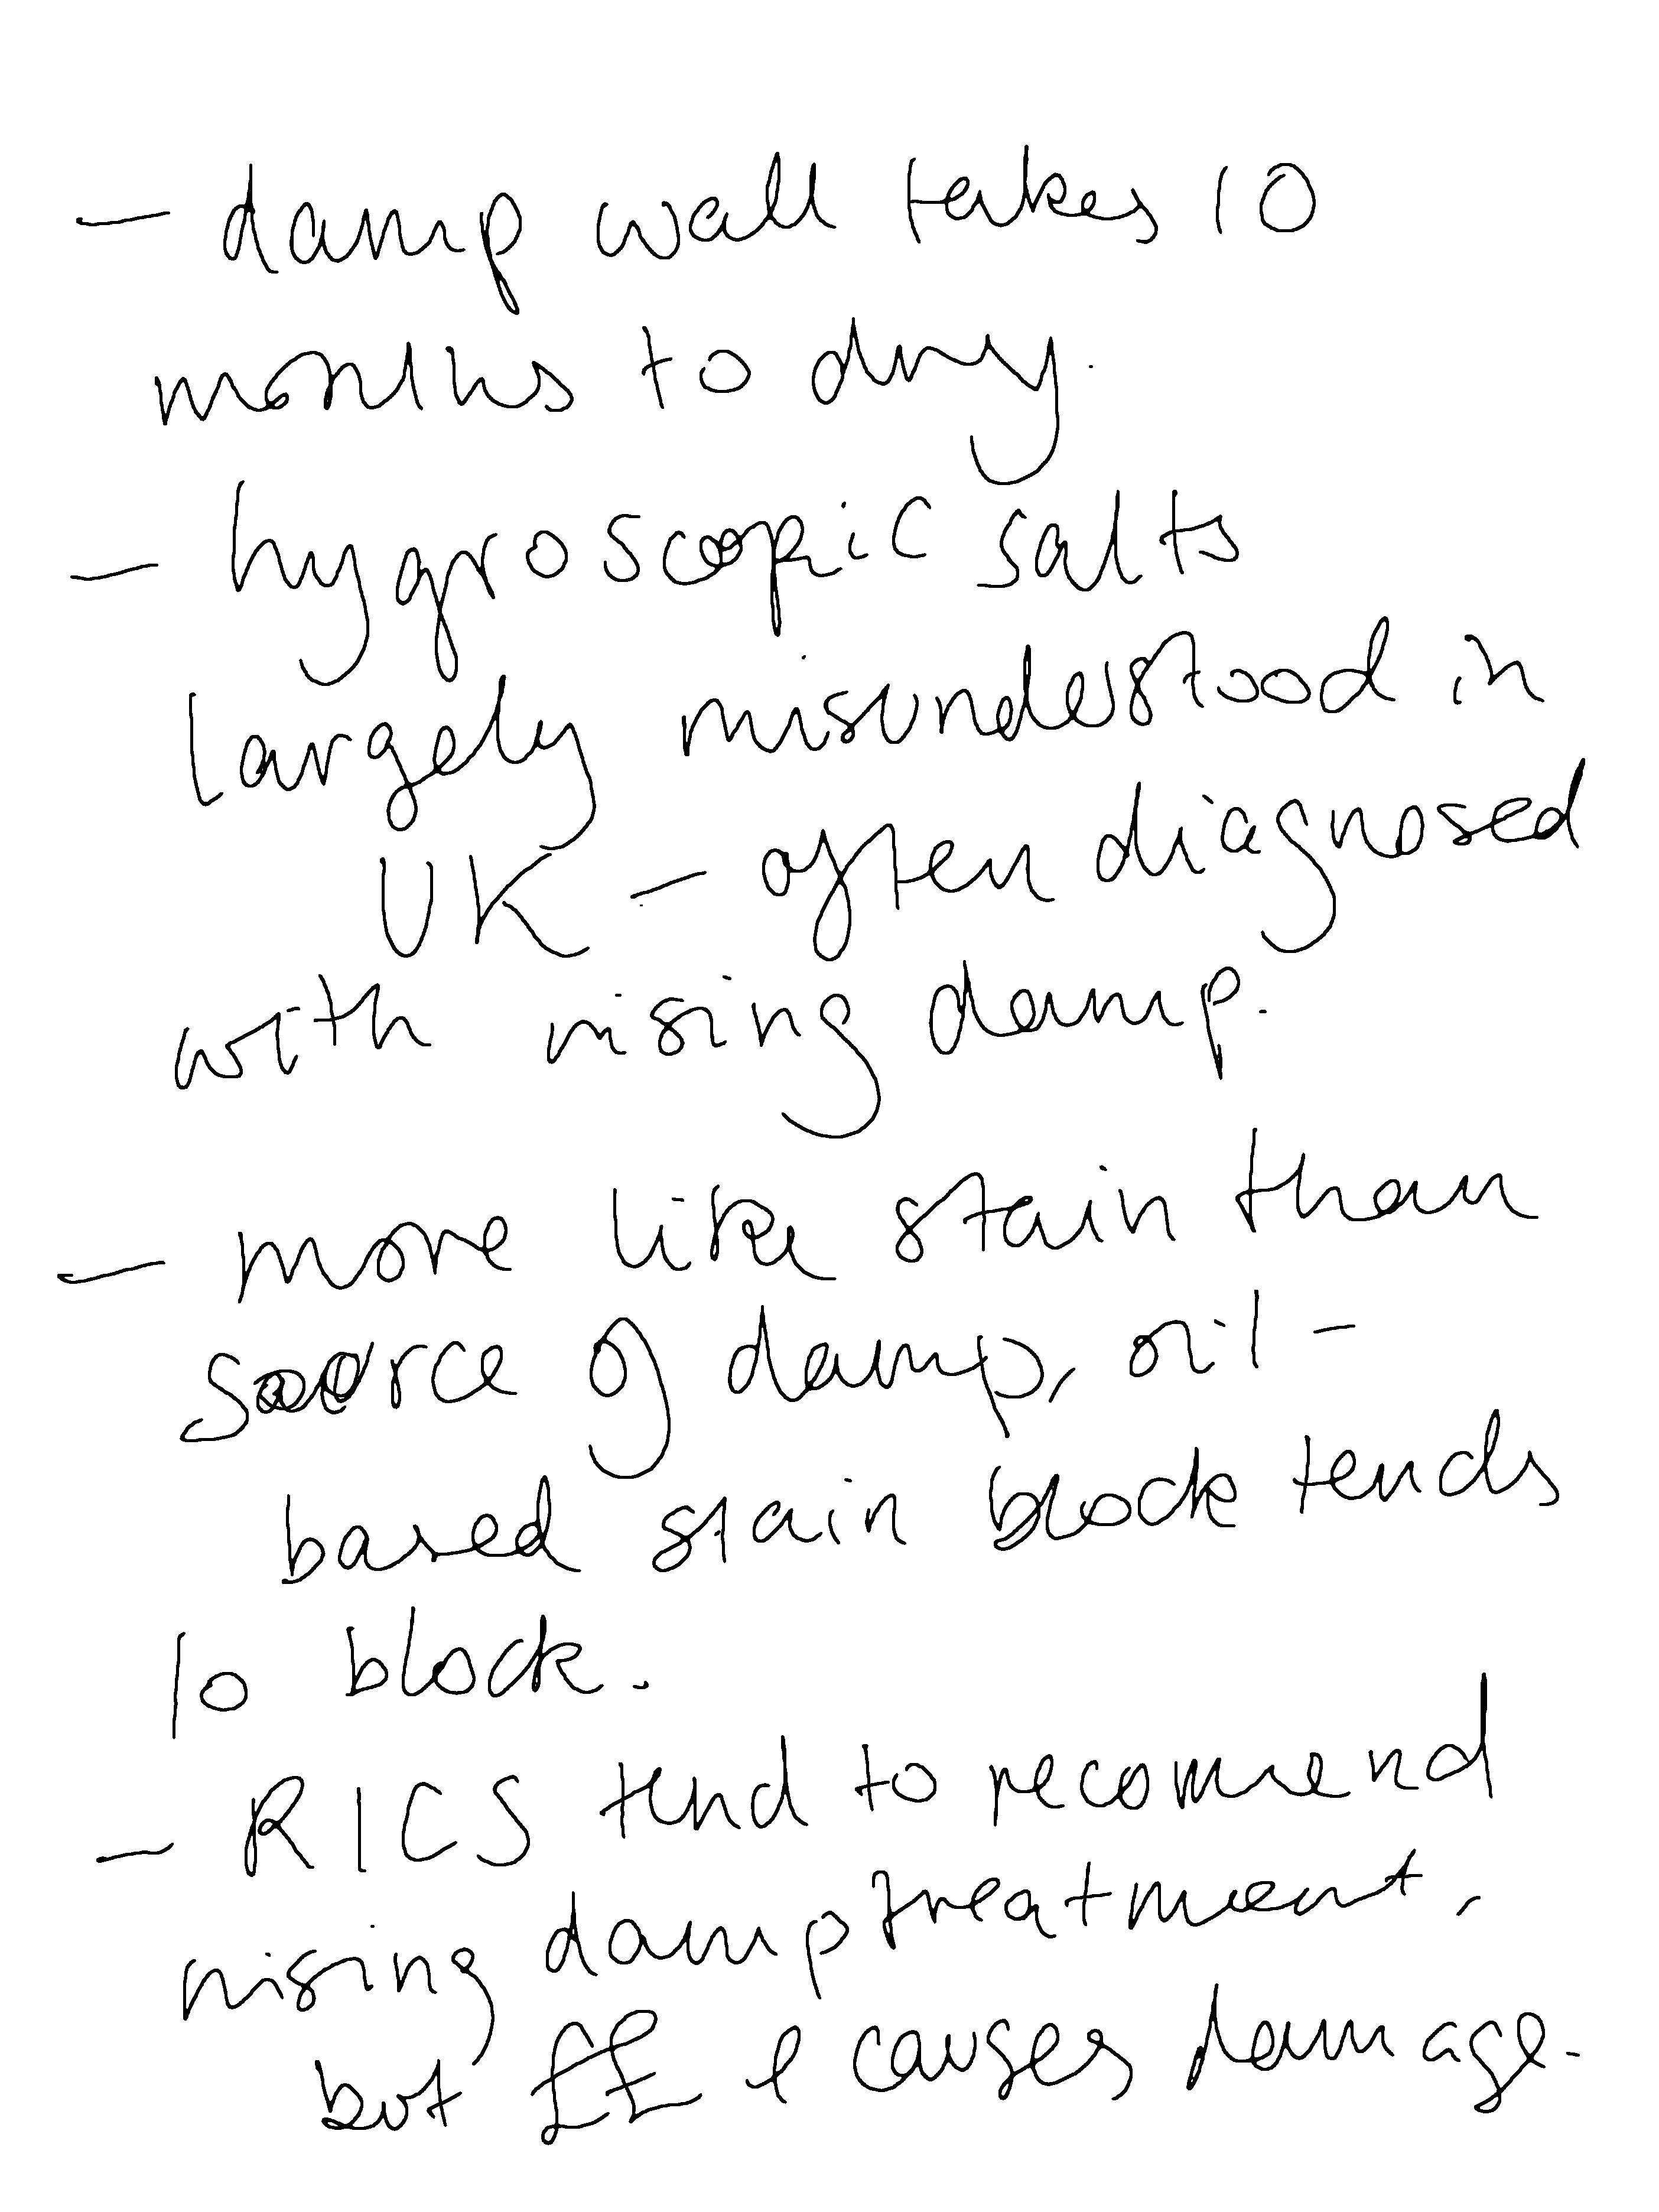 - damp wall takes 10
months to dry.
- hygroscopic salts
largely misunderstood in
UK - often diagnosed
with rising damp.
- more like stain than
source of damp, oil-
based stain block tends
to block.
- RICS tend to recommend
rising damp treatment,
but ££ & causes damage.